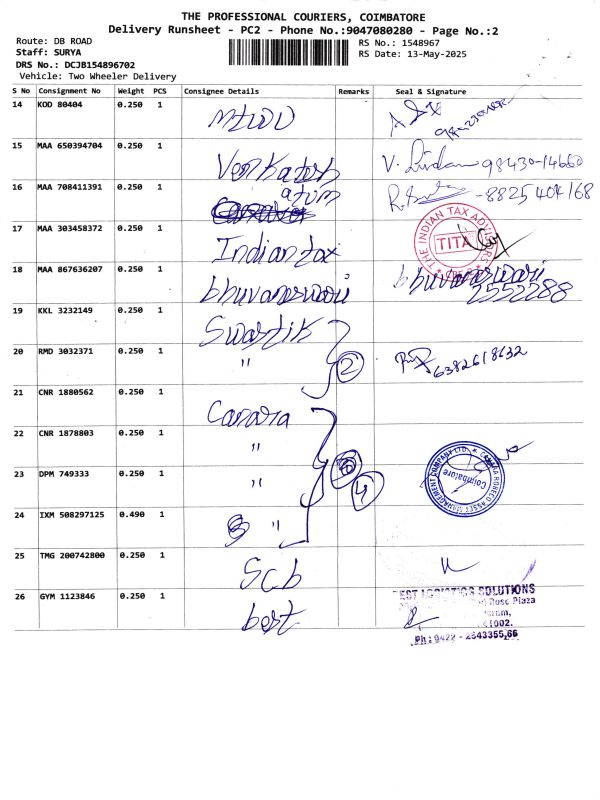 THE PROFESSIONAL COURIERS, COIMBATORE
Delivery Runsheet - PC2 - Phone No.:9047080280 - Page No.:2
Route: DB ROAD
Staff: SURYA
DRS No.: DCJB154896702
Vehicle: Two Wheeler Delivery
RS No.: 1548967
RS Date: 13-May-2025
S No Consignment No Weight PCS Consignee Details Remarks Seal & Signature
14 KOD 80404 0.250 1
15 MAA 650394704 0.250 1 Venkatesh V. 98430-14660
16 MAA 708411391 0.250 1 atum -8825404168
17 MAA 303458372 0.250 1 Indian tax THE INDIAN TAX ADVISORS TITA
18 MAA 867636207 0.250 1 bhuvaneswari bhuvaneswari 2552288
19 KKL 3232149 0.250 1 Swastik
20 RMD 3032371 0.250 1 " 2 6382618632
21 CNR 1880562 0.250 1 Canara
22 CNR 1878803 0.250 1 "
23 DPM 749333 0.250 1 " 4 CANARA ROBECO ASSET MANAGEMENT COMPANY LTD. Coimbatore
24 IXM 508297125 0.490 1 "
25 TMG 200742800 0.250 1 Scb
26 GYM 1123846 0.250 1 best
LOGISTICS SOLUTIONS
Plaza
Ph : 0422 - 2643355,66